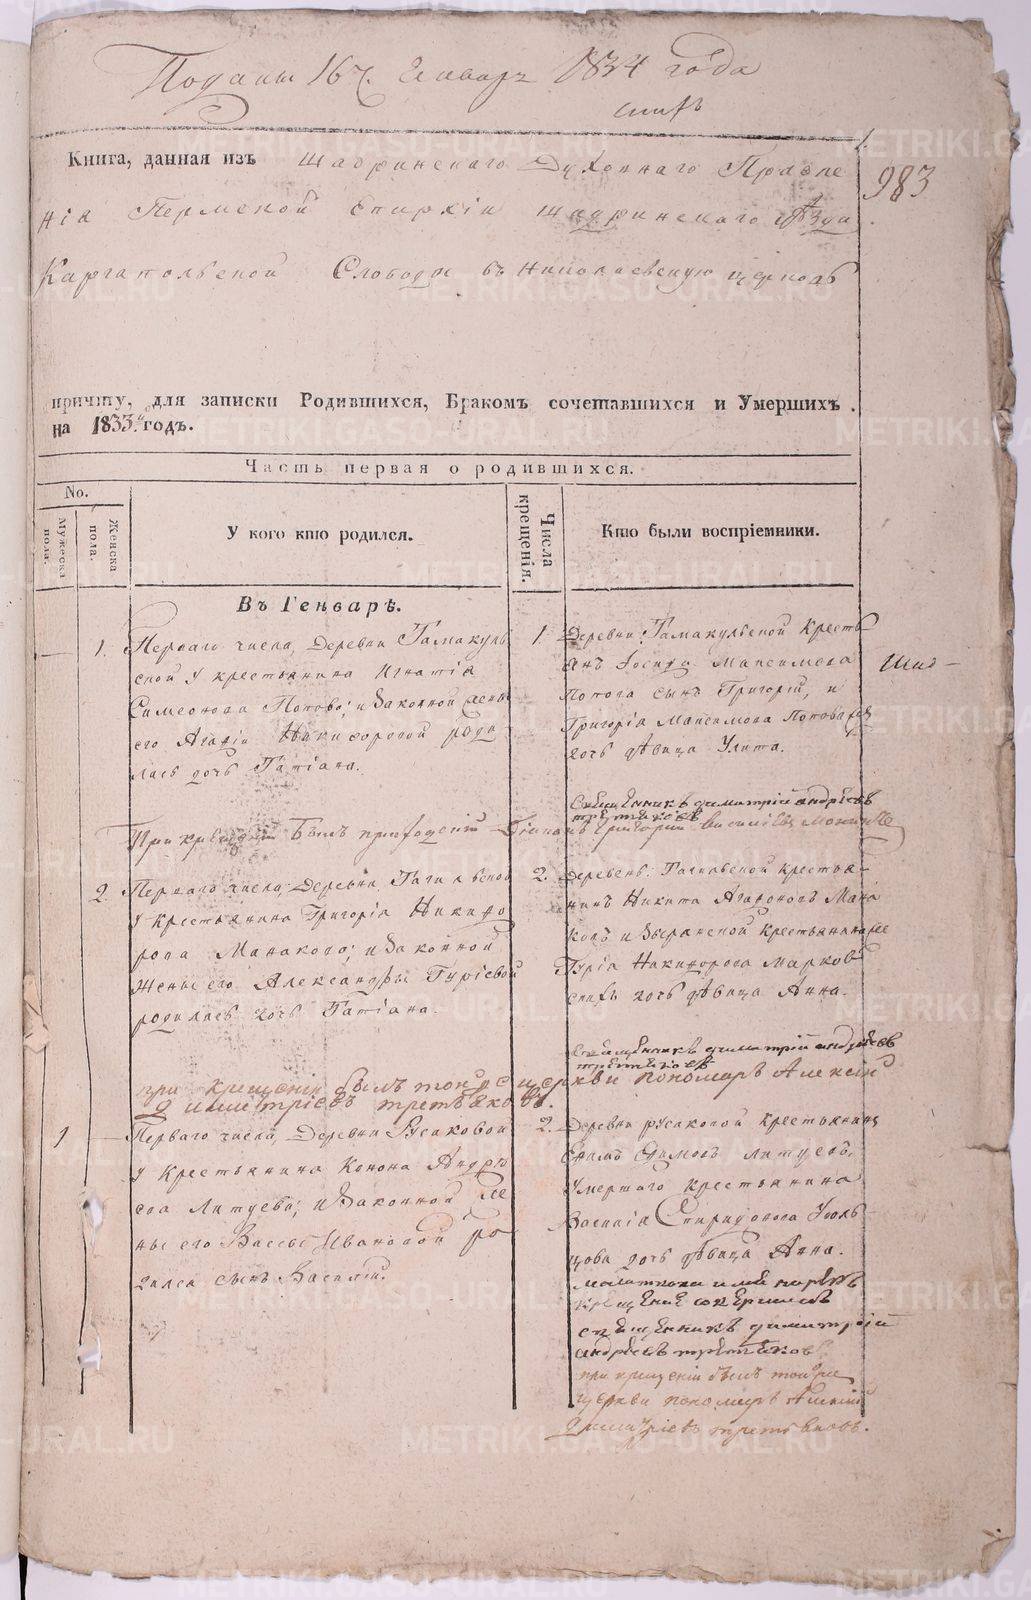 Поданы 16 ч. Генваря 1834 года
983
Книга, данная изъ Шадринскаго Духовнаго Правле
нія Пермской Епархіи Шадринскаго уѣзда
Каргапольской Слободы въ Николаевскую церковь
причту, для записки Родившихся, Бракомъ сочетавшихся и Умершихъ
на 1833й годъ.
Часть первая о родившихся.
No.
Мужеска пола.
Женска пола.
У кого кто родился.
Числа крещенія.
Кто были воспріемники.
Въ Генварѣ.
1.
Перваго числа, Деревни Тамакуль
ской у крестьянина Игнатія
Симеонова Попова; и законной жены
его Агафіи Никифоровой роди
лась дочь Татіана.
1
Деревни: Тамакульской Кресть
янъ Іосифа Максимова
Попова сынъ Григорій, и
Григорія Максимова Попова же
дочь дѣвица Улита.
Священникъ димитрій андрѣевъ
третьяковъ
При крещеніи былъ приходскій Діаконъ Григорій Василіевъ
2.
Перваго числа, Деревни
у крестьянина Григорія Никифо
рова Манакова; и законной
жены его Александры Гуріевой
родилась дочь Татіана.
2.
крестья-
нинъ Никита Агафоновъ Мана
ковъ и крестьянина же
Гурія Никифорова Марков
дочь дѣвица Анна.
Священникъ димитрій андрѣевъ
третьяковъ
при крещеніи былъ той же церкви пономарь Алексій
Димитріевъ третьяковъ.
1
Перваго числа, Деревни Русаковой
у Крестьянина Конона Андрѣ
ева Литуева; и законной же
ны его Вассы Ивановой ро
дился сынъ Василій.
2.
Деревни русаковой крестьянинъ
Ефимъ Ефимовъ Литуевъ,
умершаго крестьянина
Василія Спиридонова Усоль
цова дочь дѣвица Анна.
молитвовалъ и имя нарекъ
крещеніе совершилъ
священникъ димитрій
андрѣевъ третьяковъ
при крещеніи былъ той же
церкви пономарь Алексій
Димитріевъ третьяковъ.